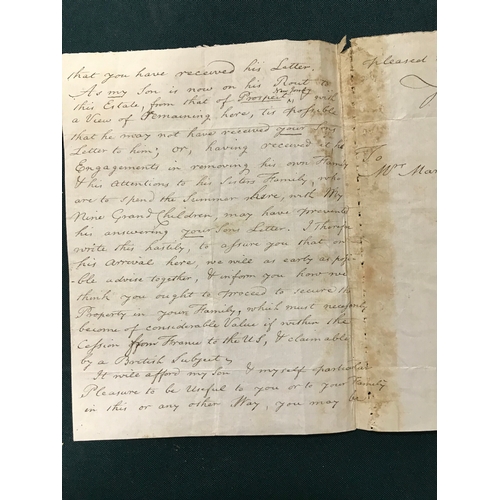 that you have received his Letter.
As my Son is now on his Rout to
this Estate, from that of Prospect New Jersey with
a View of Remaining here, tis possible
that he may not have received your Sons
Letter to him; or, having received it his
Engagements in removing his own Family
& his Attentions to his Sisters Family, who
are to spend the Summer there, with My
Nine Grand Children, may have prevented
his answering your Sons Letter. I therefore
write this hastily, to assure you that on
his Arrival here, we will as early as possi-
ble advise together, & inform you how we
think you ought to proceed to secure the
Property in your Family, which must necessarily
become of considerable Value if within the
Cession from France to the U.S, & claimable
by a British Subject,
It will afford my Son & myself particular
Pleasure to be Useful to you or to your Family
in this or any other Way, you may be
pleased
To
Mr Mar